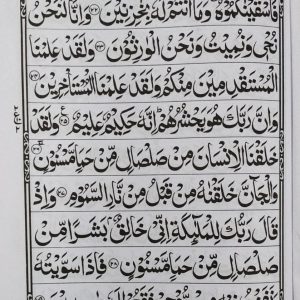 فَاَسْقَيْنٰكُمُوْهُ وَمَآ اَنْتُمْ لَهٗ بِخٰزِنِيْنَ ﴿۲۲﴾ وَاِنَّا لَنَحْنُ
نُحْيٖ وَنُمِيْتُ وَنَحْنُ الْوٰرِثُوْنَ ﴿۲۳﴾ وَلَقَدْ عَلِمْنَا
الْمُسْتَقْدِمِيْنَ مِنْكُمْ وَلَقَدْ عَلِمْنَا الْمُسْتَاْخِرِيْنَ ﴿۲۴﴾
وَاِنَّ رَبَّكَ هُوَ يَحْشُرُهُمْ ؕ اِنَّهٗ حَكِيْمٌ عَلِيْمٌ ﴿۲۵﴾ وَلَقَدْ
خَلَقْنَا الْاِنْسَانَ مِنْ صَلْصَالٍ مِّنْ حَمَاٍ مَّسْنُوْنٍ ﴿۲۶﴾
وَالْجَآنَّ خَلَقْنٰهُ مِنْ قَبْلُ مِنْ نَّارِ السَّمُوْمِ ﴿۲۷﴾ وَاِذْ
قَالَ رَبُّكَ لِلْمَلٰٓئِكَةِ اِنِّيْ خَالِقٌۢ بَشَرًا مِّنْ
صَلْصَالٍ مِّنْ حَمَاٍ مَّسْنُوْنٍ ﴿۲۸﴾ فَاِذَا سَوَّيْتُهٗ